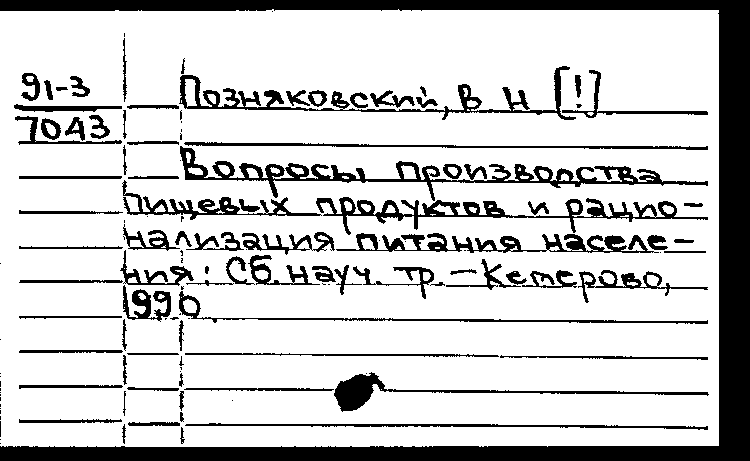 91-3
7043
Позняковский, В Н [!]
Вопросы производства
пищевых продуктов и рацио-
нализация питания населе-
ния: Сб. науч. тр. – Кемерово,
1990.